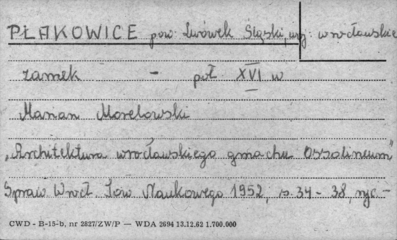 PŁAKOWICE pow. Lwówek Śląski, woj. wrocławskie
zamek - poł. XVI w
Marian Morelowski
"Architektura wrocławskiego gmachu Ossolineum"
Spraw Wrocł. Tow. Naukowego 1952, s. 34 - 38, ryc. -
CWD - B-15-b, nr 2827/ZW/P — WDA 2694 13.12.62 1.700.000